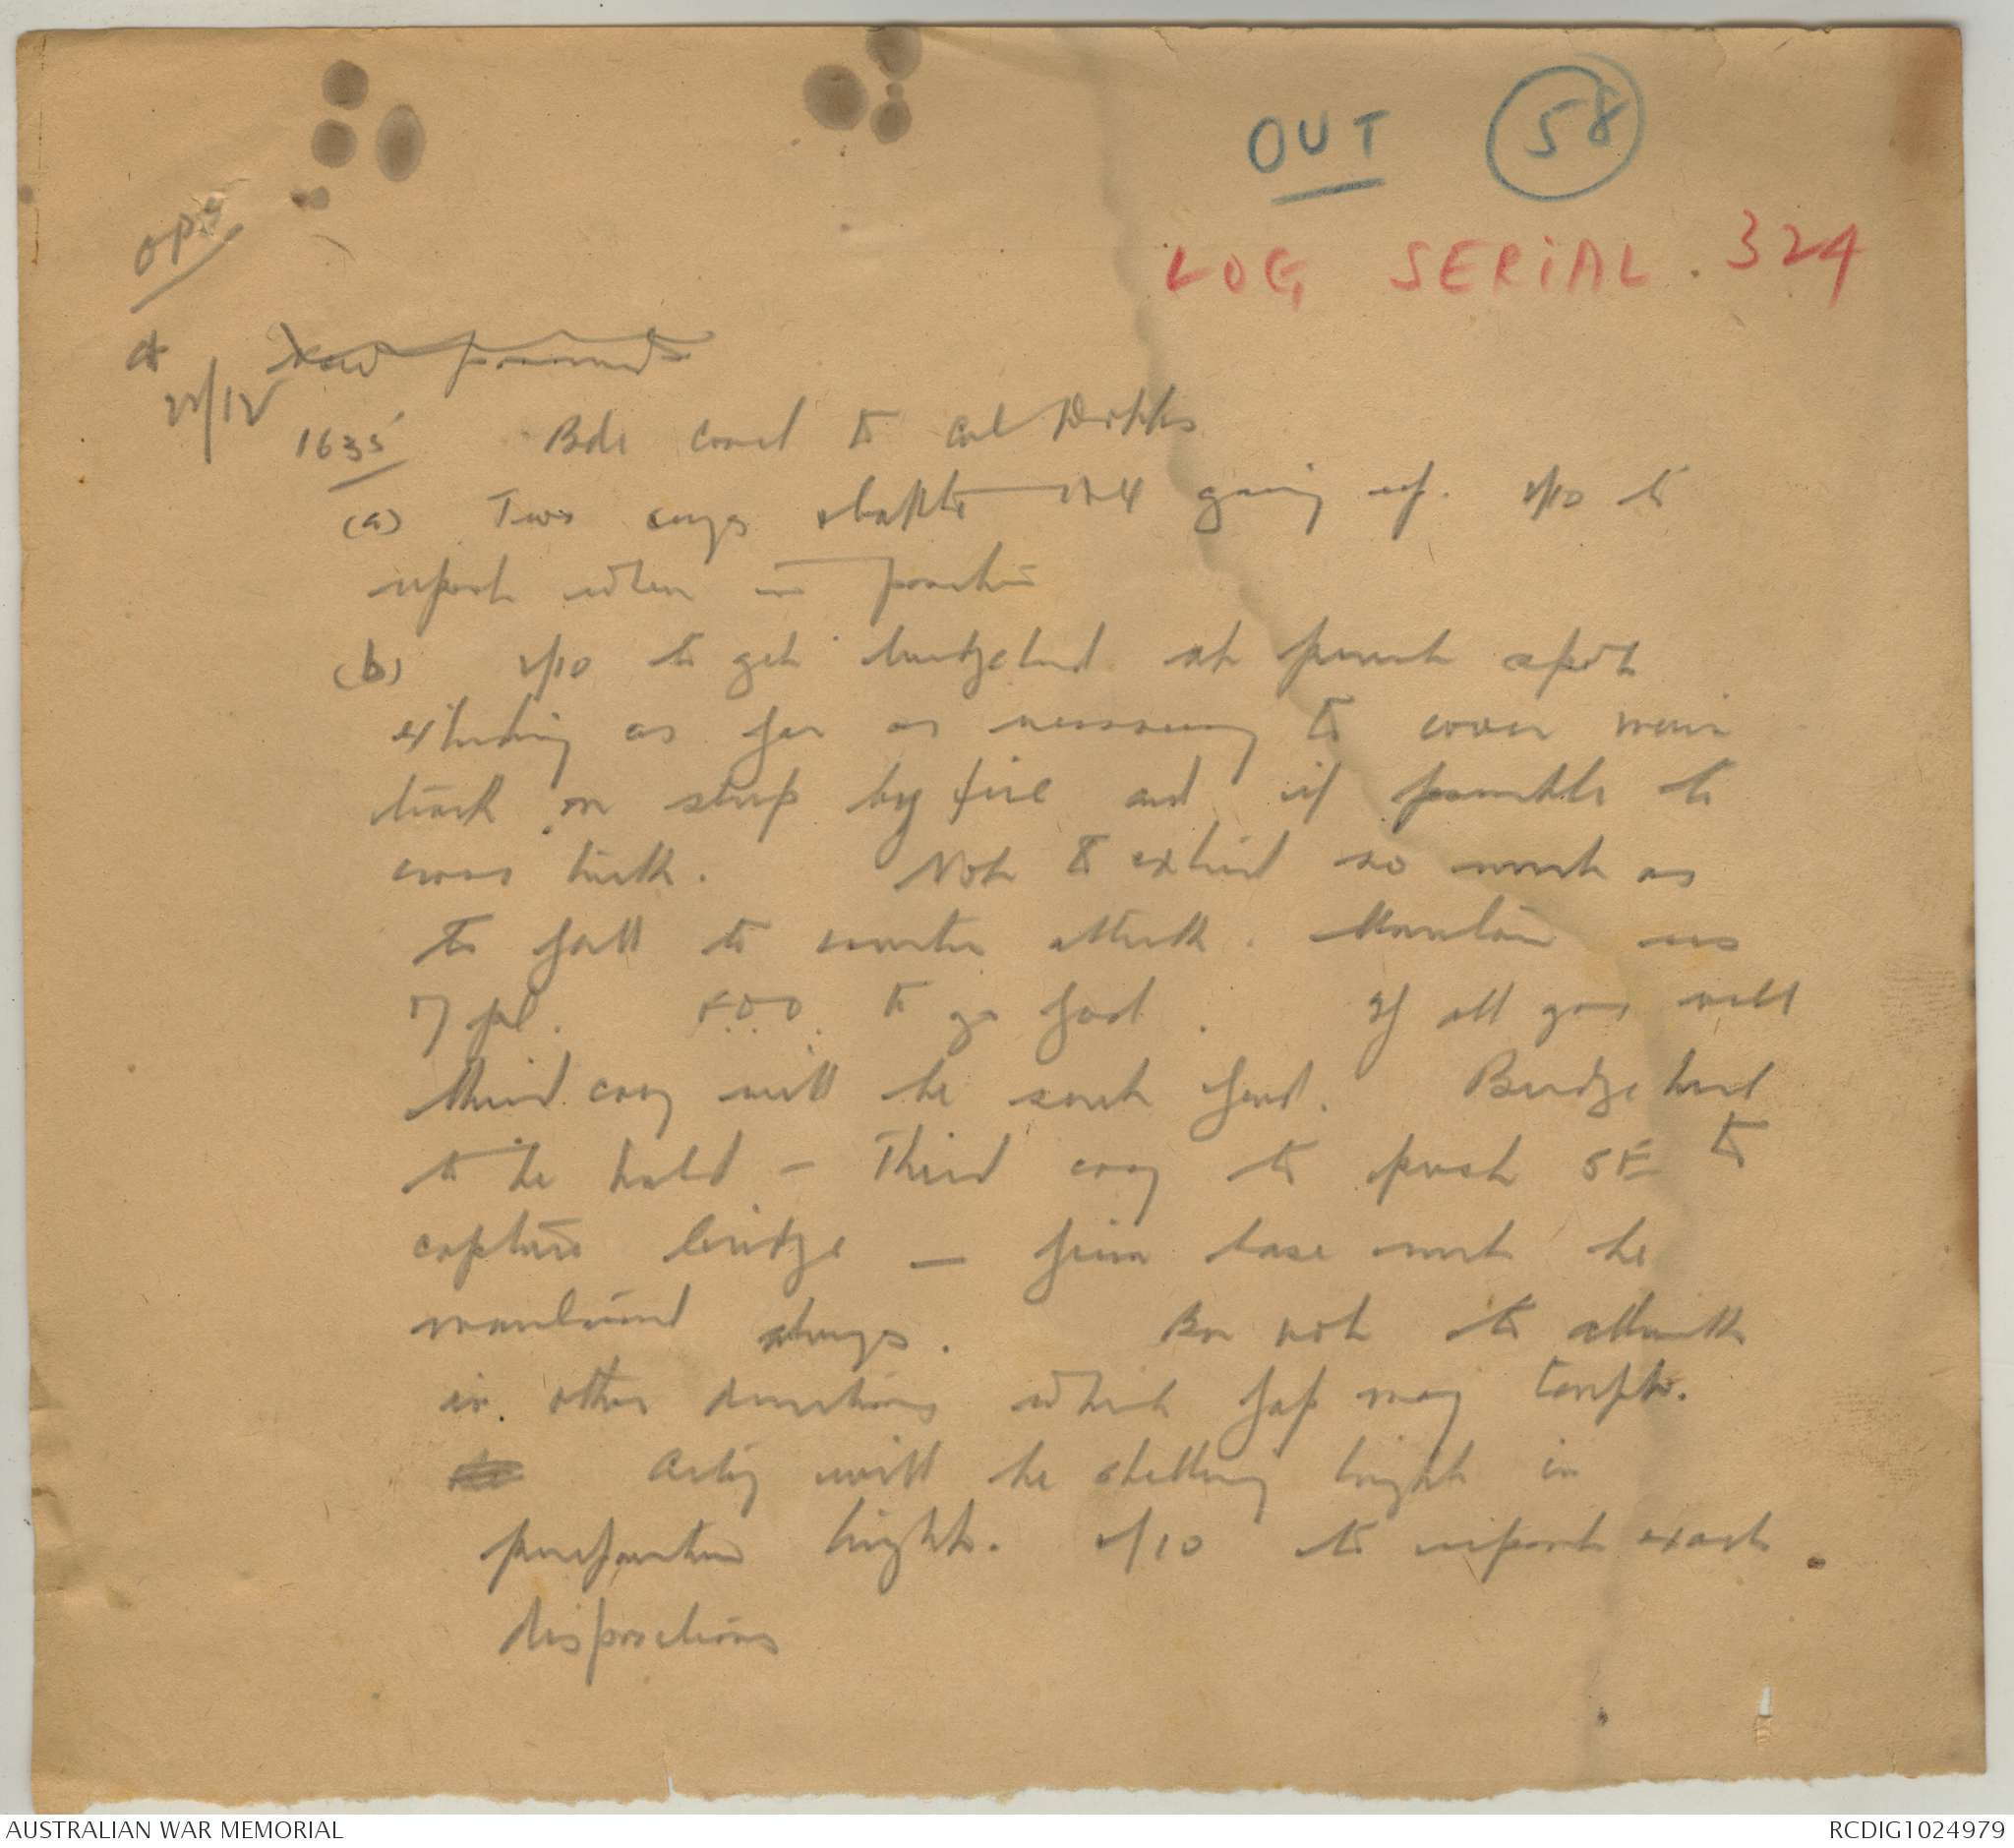 OUT 58
LOG SERIAL. 324
ops
22/12
1635 Bde Comd to Col
(a) Two coys going up. 2/10 to
report when in position
(b) 2/10 to get bridgehead at present spot
extending as far as necessary to cover main
track on strip by fire and if possible to
cross track. Not to extend so much as
to fall to counter attack. Maintain
17 pl. F.O.O. to go fwd. If all goes well
third coy will be sent fwd. Bridgehead
to be held - Third coy to push SE to
capture bridge - firm base must be
maintained always. Bn not to attack
in other directions which Jap may tempt.
Arty will be shelling tonight in
preparation tonight. 2/10 to report exact
dispositions
AUSTRALIAN WAR MEMORIAL
RCDIG1024979